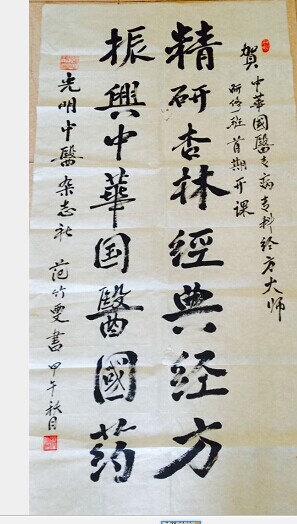 賀 中華國醫专病专科经方大师
研修班首期开课
精研杏林經典经方
振興中華国醫國药
光明中醫杂志社 范竹雯書 甲午秋月